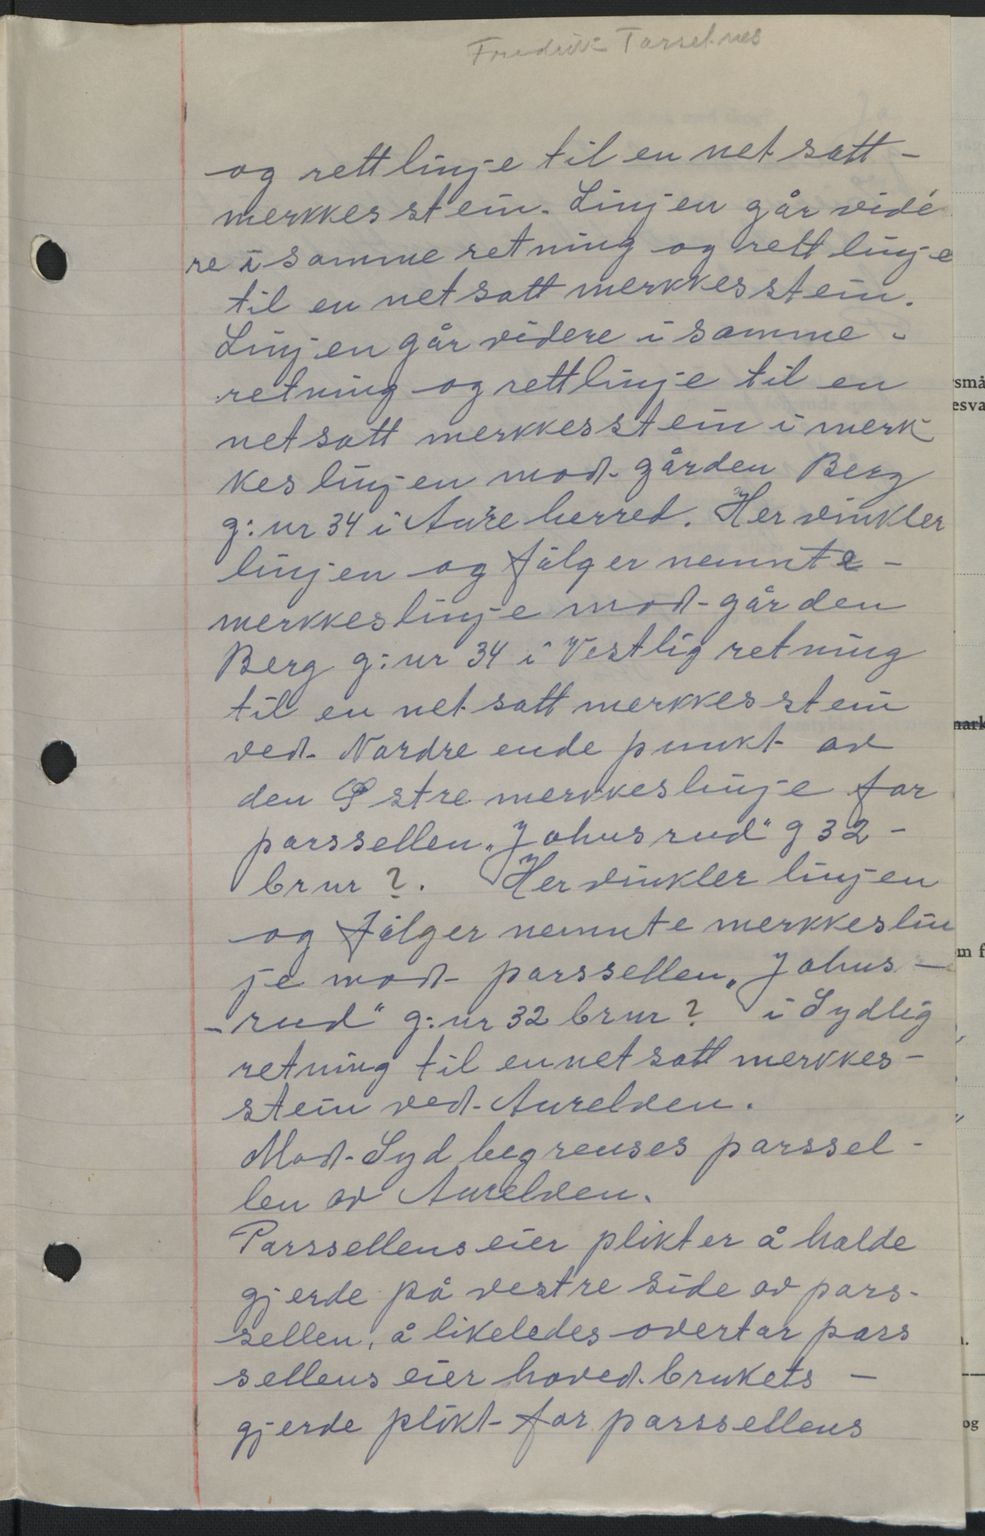 Fredrik Tarsetnes
og rettlinje til en net satt-
merkkesstein. Linjen går vide
re i samme retning og rett linje
til en netsatt merkkesstein.
Linjen går videre i samme -
retning og rettlinje til en
netsatt merkkesstein i merk
keslinjen mod. gården Berg
g:nr 34 i Aure herred. Her vinkler
linjen og følger nemnte -
merkkeslinje mod-gården
Berg g:nr 34 i Vestlig retning
til en netsatt merkkesstein
ved. Nordre ende punkt av
den Østre merkkeslinje for
parssellen „Johnsrud" g 32 -
brnr ?. Her vinkler linjen
og følger nemnte merkkeslin
je mod- parssellen „Johns-
-rud" g:nr 32 brnr ? i Sydlig
retning til en netsatt merkkes-
stein ved. Aurelven.
Mod. Syd begrenses parssel-
len av Aurelven.
Parssellens eier plikter å halde
gjerde på vestre side av pars-
sellen, å likeledes overtar pars
sellens eier hoved.brukets -
gjerde plikt- for parssellens
små
esva
mark
m f
og